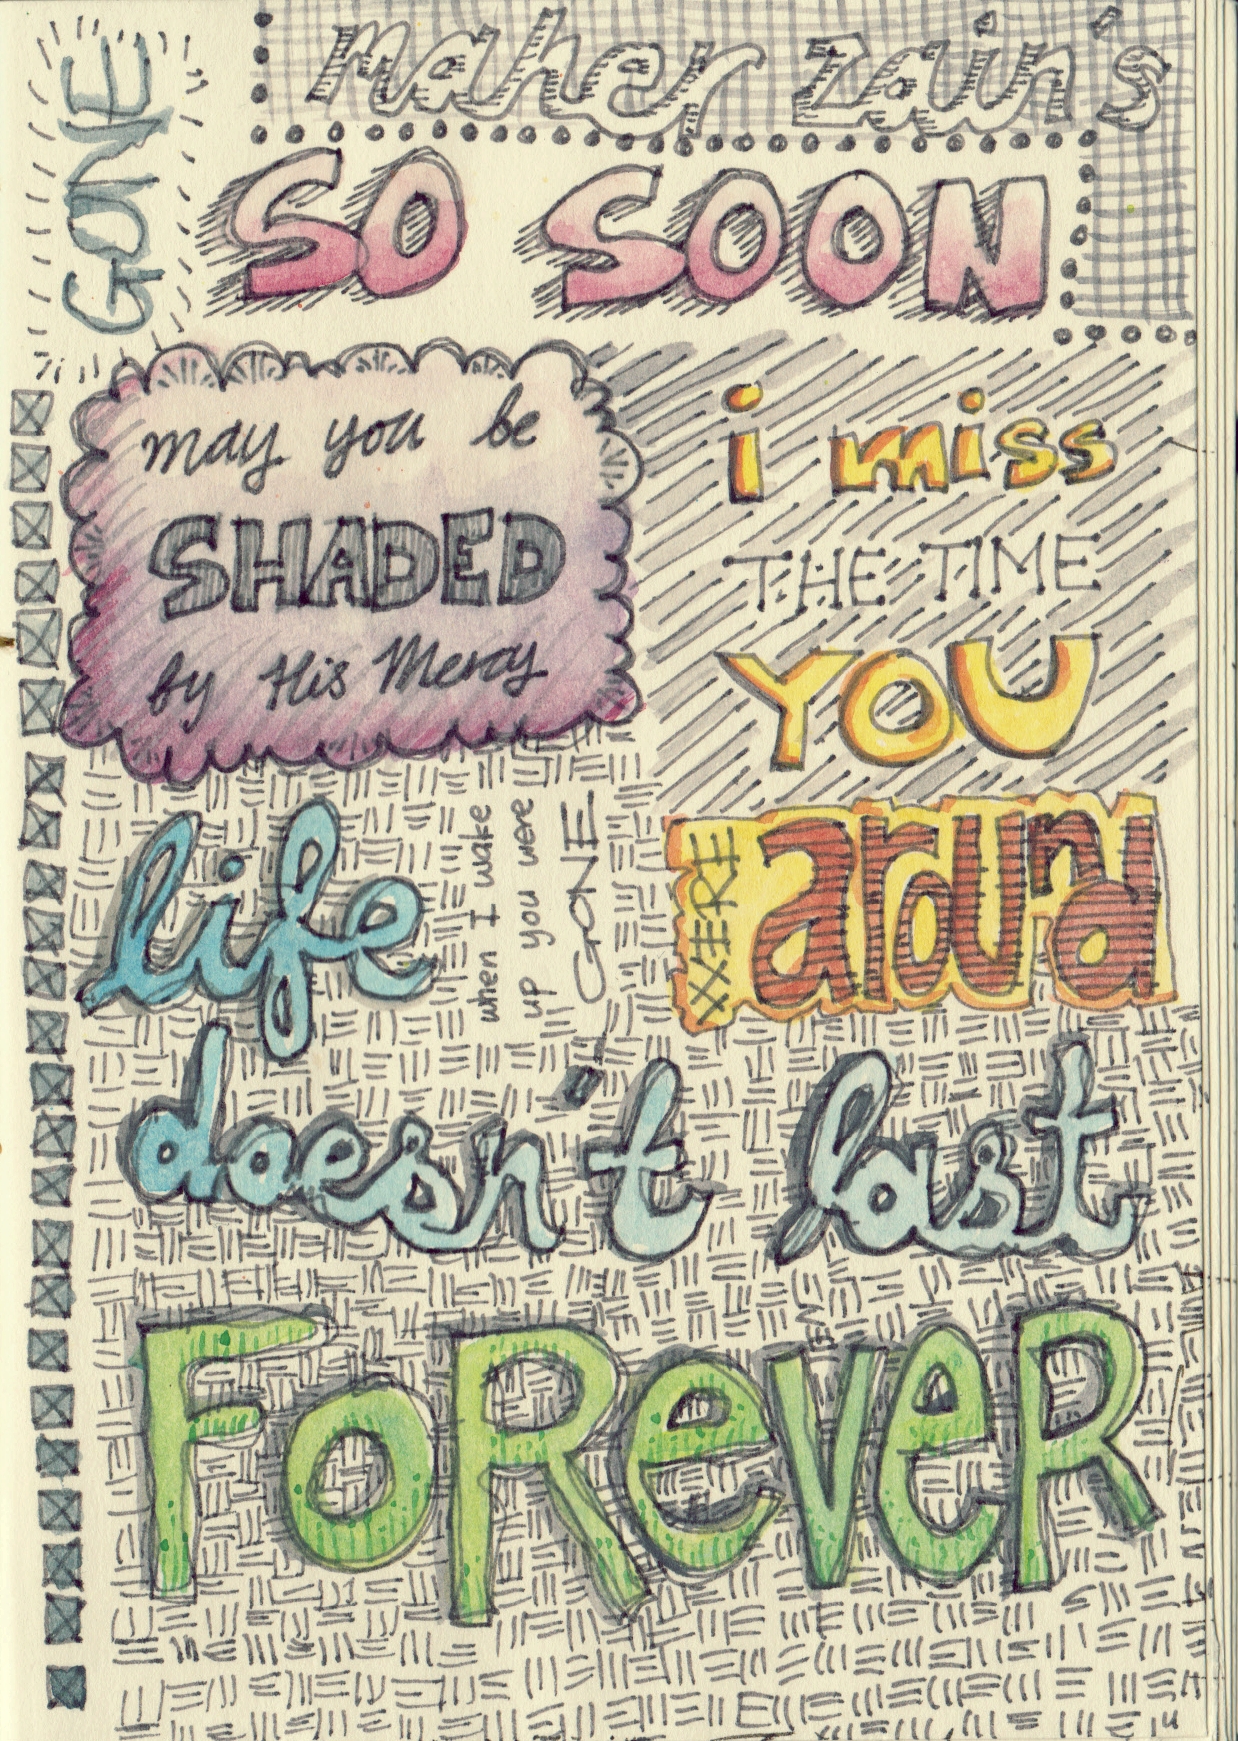 Maher Zain's
GONE
SO SOON
may you be
SHADED
by His Mercy
i miss
THE TIME
YOU
WERE
around
life
when I wake
up you were
GONE
doesn't last
FOREVER